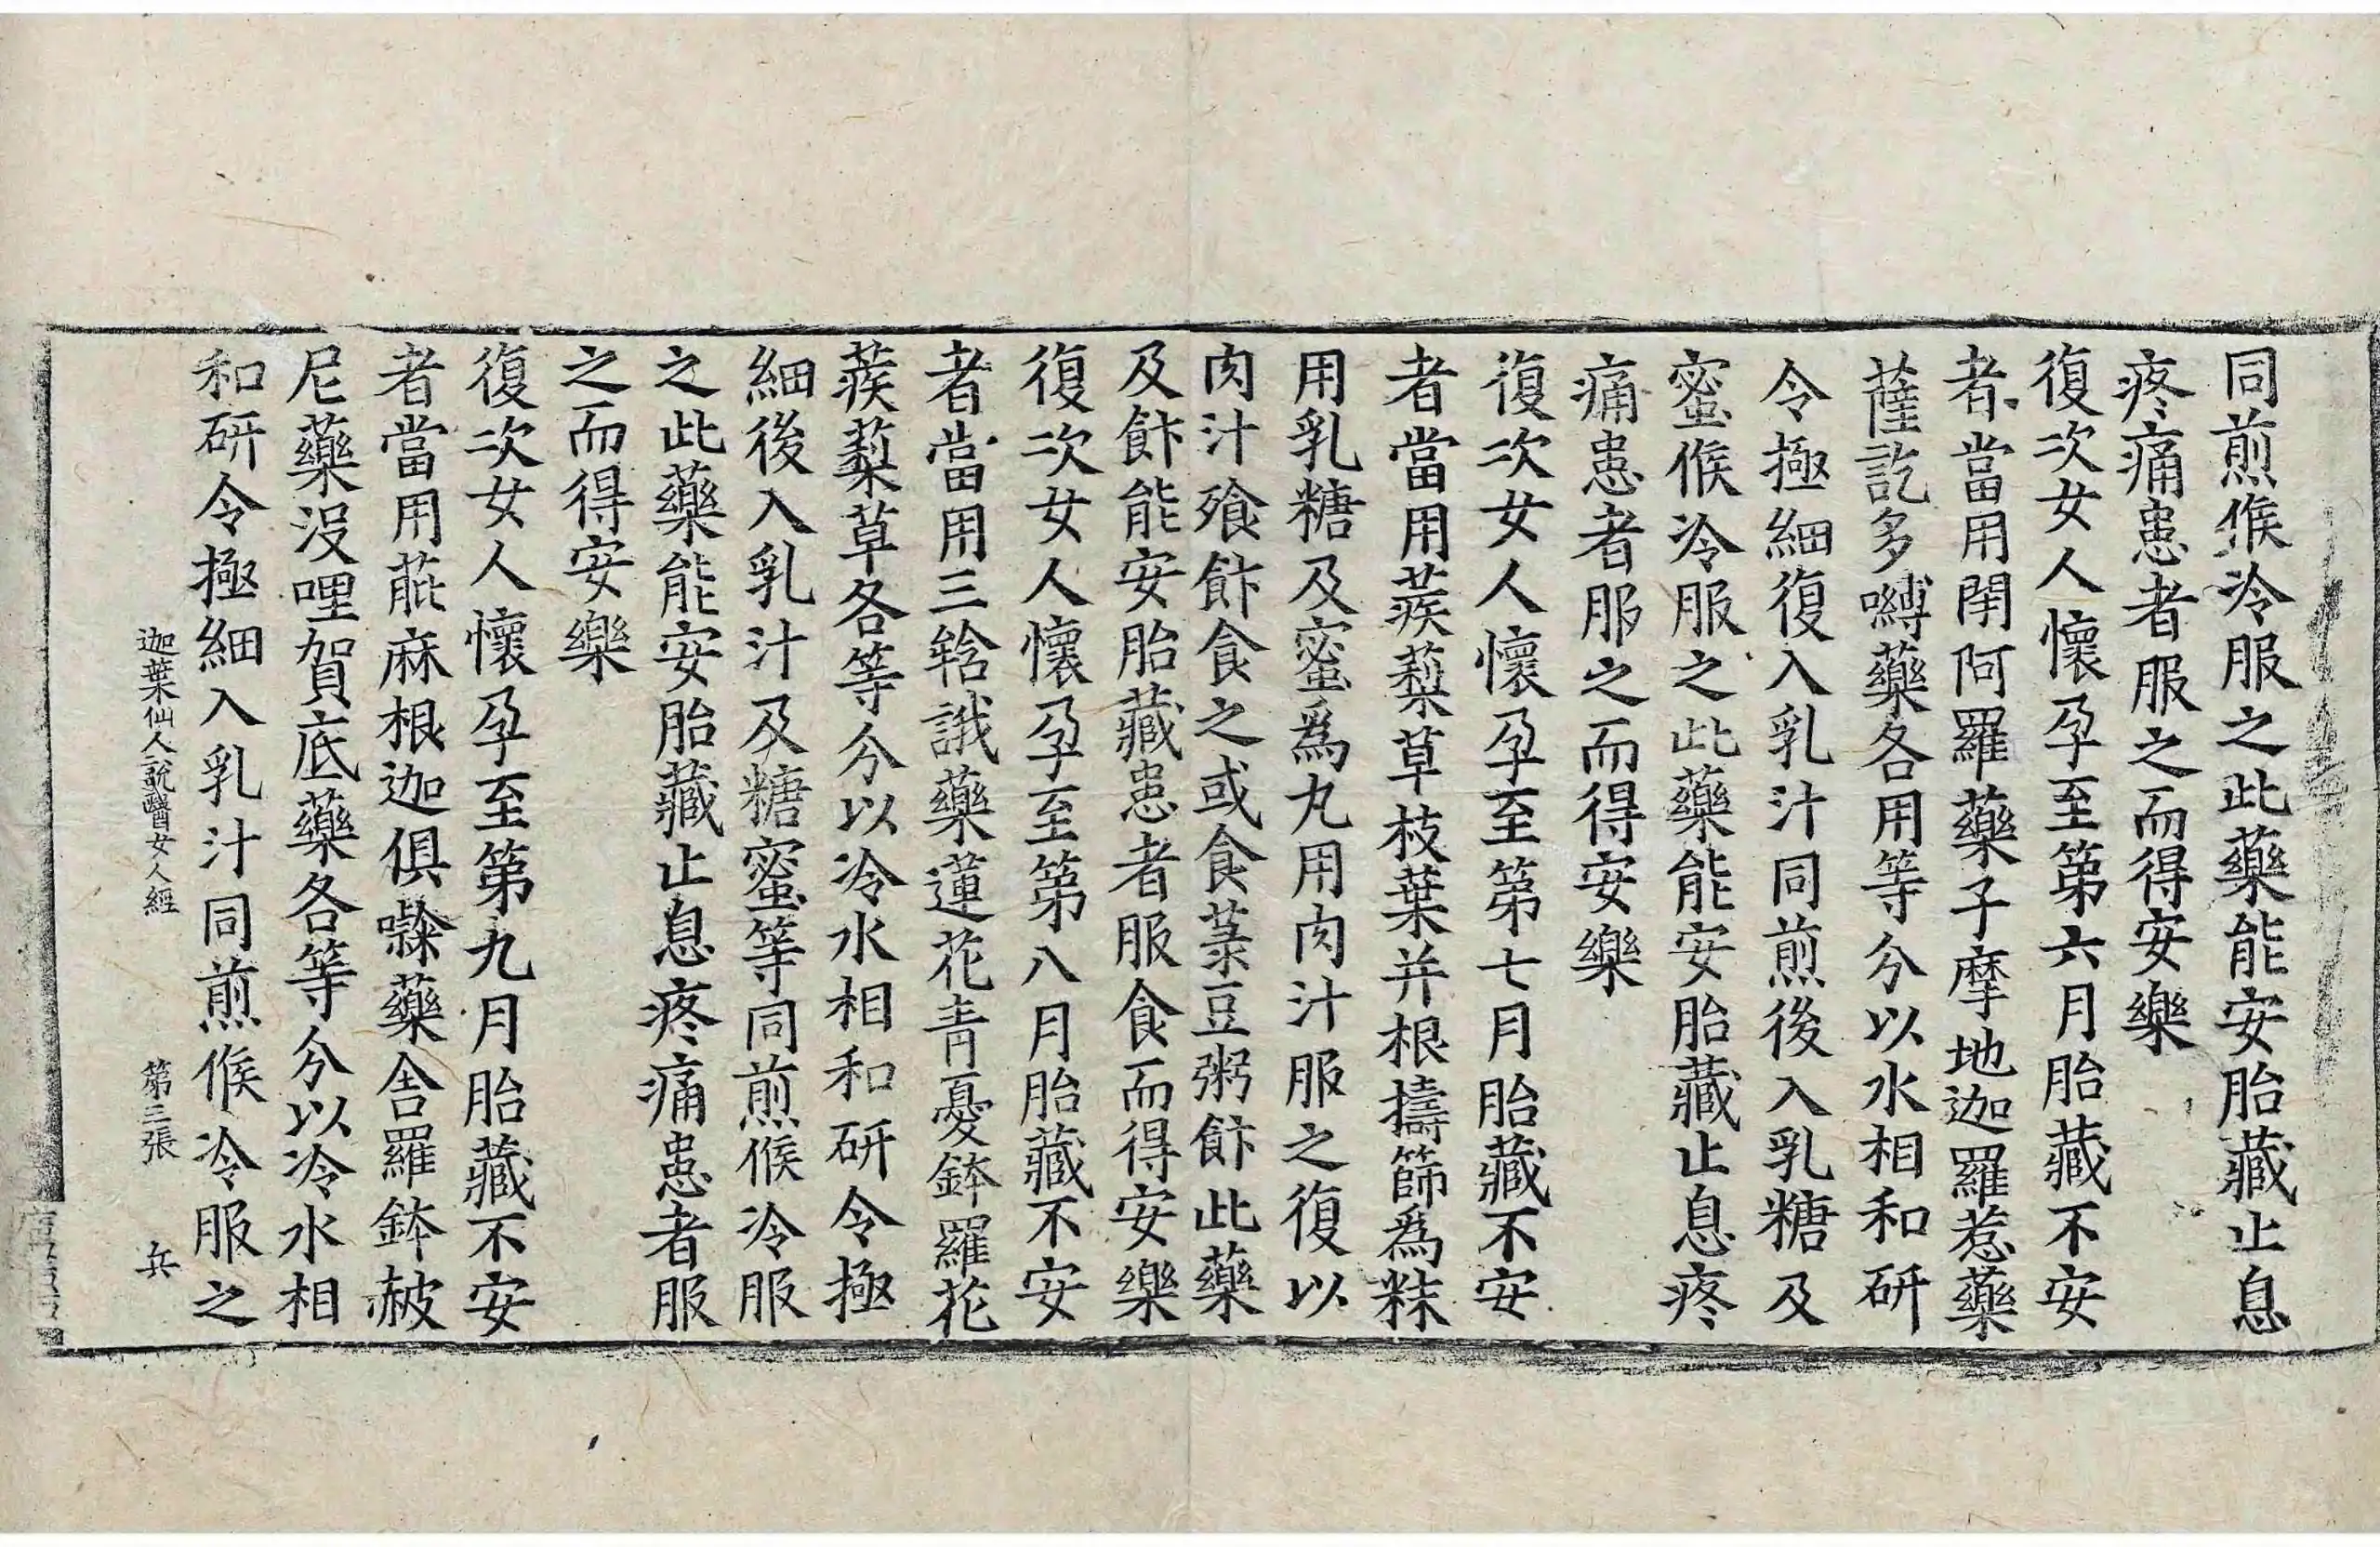 同煎候冷服之此藥能安胎藏止息
疼痛患者服之而得安樂
復次女人懷孕至第六月胎藏不安
者當用閉阿羅藥子摩地迦羅惹藥
薩訖多嚩藥各用等分以水相和研
令極細復入乳汁同煎後入乳糖及
蜜候冷服之此藥能安胎藏止息疼
痛患者服之而得安樂
復次女人懷孕至第七月胎藏不安
者當用蒺䔧草枝葉并根擣篩爲粖
用乳糖及蜜爲丸用肉汁服之復以
肉汁飱飰食之或食菉豆粥飰此藥
及飰能安胎藏患者服食而得安樂
復次女人懷孕至第八月胎藏不安
者當用三䪺誐藥蓮花青憂鉢羅花
蒺䔧草各等分以冷水相和研令極
細後入乳汁及糖蜜等同煎候冷服
之此藥能安胎藏止息疼痛患者服
之而得安樂
復次女人懷孕至第九月胎藏不安
者當用萞麻根迦俱嚟藥舍羅鉢㲱
尼藥没哩賀底藥各等分以冷水相
和研令極細入乳汁同煎候冷服之
迦葉仙人說醫女人經 第三張 兵